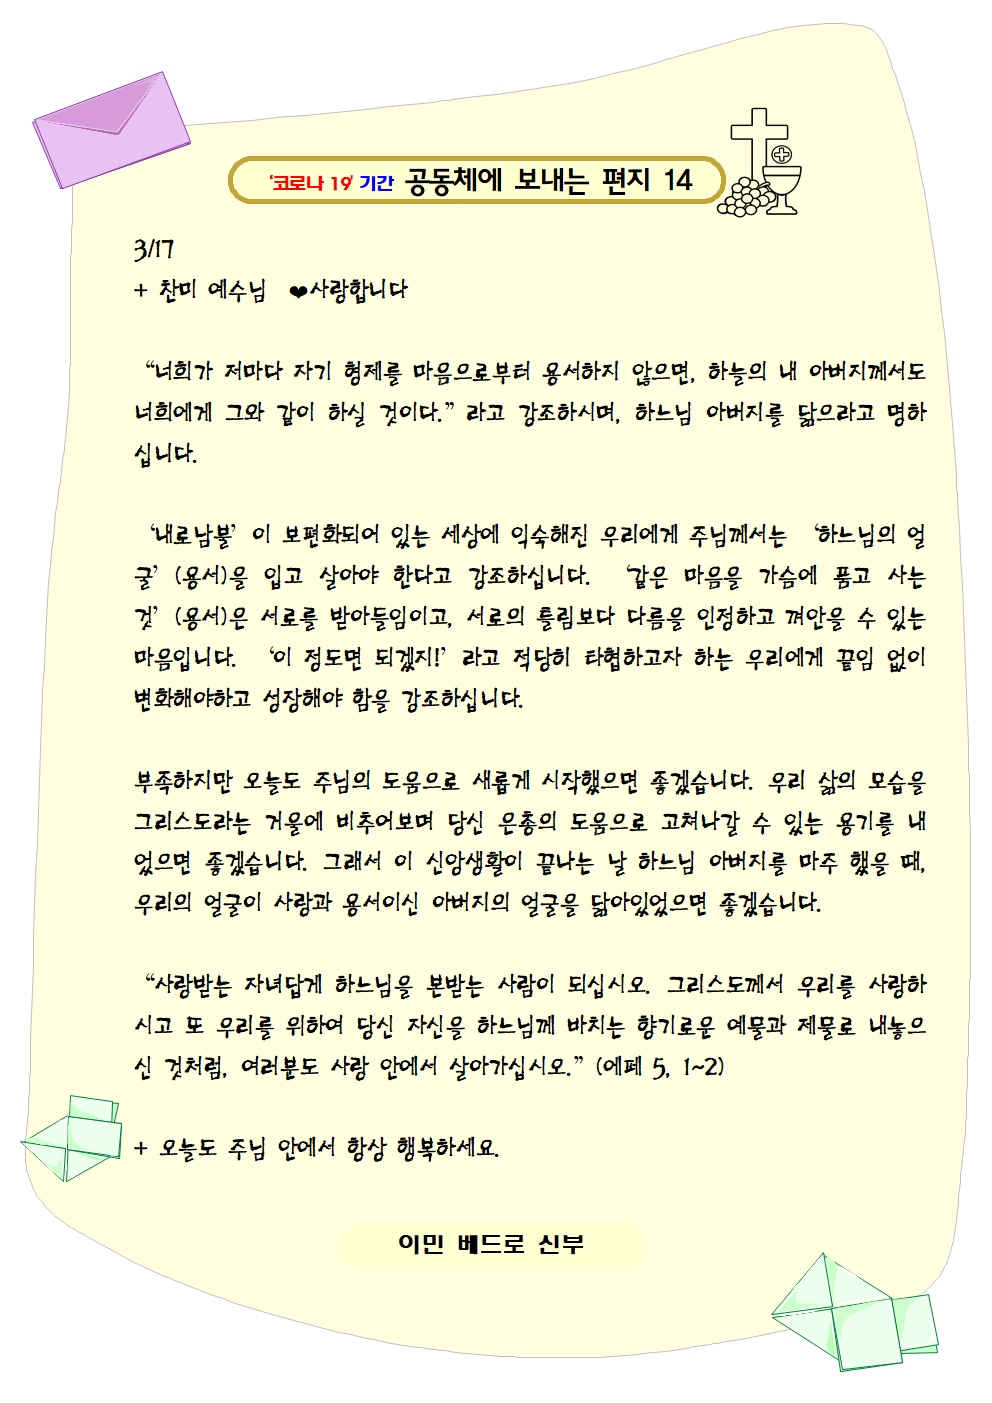 '코로나 19' 기간 공동체에 보내는 편지 14
3/17
+ 찬미 예수님 ❤사랑합니다
“너희가 저마다 자기 형제를 마음으로부터 용서하지 않으면, 하늘의 내 아버지께서도
너희에게 그와 같이 하실 것이다.” 라고 강조하시며, 하느님 아버지를 닮으라고 명하
십니다.
‘내로남불’ 이 보편화되어 있는 세상에 익숙해진 우리에게 주님께서는 ‘하느님의 얼
굴’ (용서)을 입고 살아야 한다고 강조하십니다. ‘같은 마음을 가슴에 품고 사는
것’ (용서)은 서로를 받아들임이고, 서로의 틀림보다 다름을 인정하고 껴안을 수 있는
마음입니다. ‘이 정도면 되겠지!’ 라고 적당히 타협하고자 하는 우리에게 끝임 없이
변화해야하고 성장해야 함을 강조하십니다.
부족하지만 오늘도 주님의 도움으로 새롭게 시작했으면 좋겠습니다. 우리 삶의 모습을
그리스도라는 거울에 비추어보며 당신 은총의 도움으로 고쳐나갈 수 있는 용기를 내
었으면 좋겠습니다. 그래서 이 신앙생활이 끝나는 날 하느님 아버지를 마주 했을 때,
우리의 얼굴이 사랑과 용서이신 아버지의 얼굴을 닮아있었으면 좋겠습니다.
“사랑받는 자녀답게 하느님을 본받는 사람이 되십시오. 그리스도께서 우리를 사랑하
시고 또 우리를 위하여 당신 자신을 하느님께 바치는 향기로운 예물과 제물로 내놓으
신 것처럼, 여러분도 사랑 안에서 살아가십시오.” (에페 5, 1~2)
+ 오늘도 주님 안에서 항상 행복하세요.
이민 베드로 신부